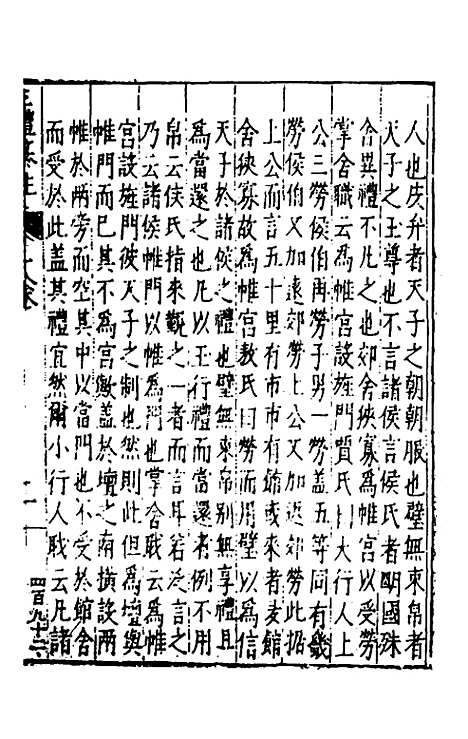 人也皮弁者天子之朝朝服也璧無束帛者
天子之玉尊也不言諸侯言侯氏者明國殊
舍異禮不凡之也郊舍狹寡爲帷宮以受勞
掌舍職云爲帷宮設旌門賈氏曰大行人上
公三勞侯伯再勞子男一勞盖五等同有畿
勞侯伯又加逺郊勞上公又加近郊勞此據
上公而言五十里有市市有館或來者衆館
舍狹寡故爲帷宮敖氏曰勞而用璧以爲信
天子於諸侯之禮也璧無束帛别無享禮且
爲當還之也凡以玉行禮而當還者例不用
帛云侯氏指來覲之一者而言耳若泛言之
乃云諸侯帷門以帷爲門也掌舍職云爲帷
宮設旌門彼天子之制也然則此但爲壇與
帷門而已其不爲宮歟盖於壇之南横設兩
帷於兩旁而空其中以當門也不受於館舍
而受於此盖其禮宜然爾小行人職云凡諸
四百九十二